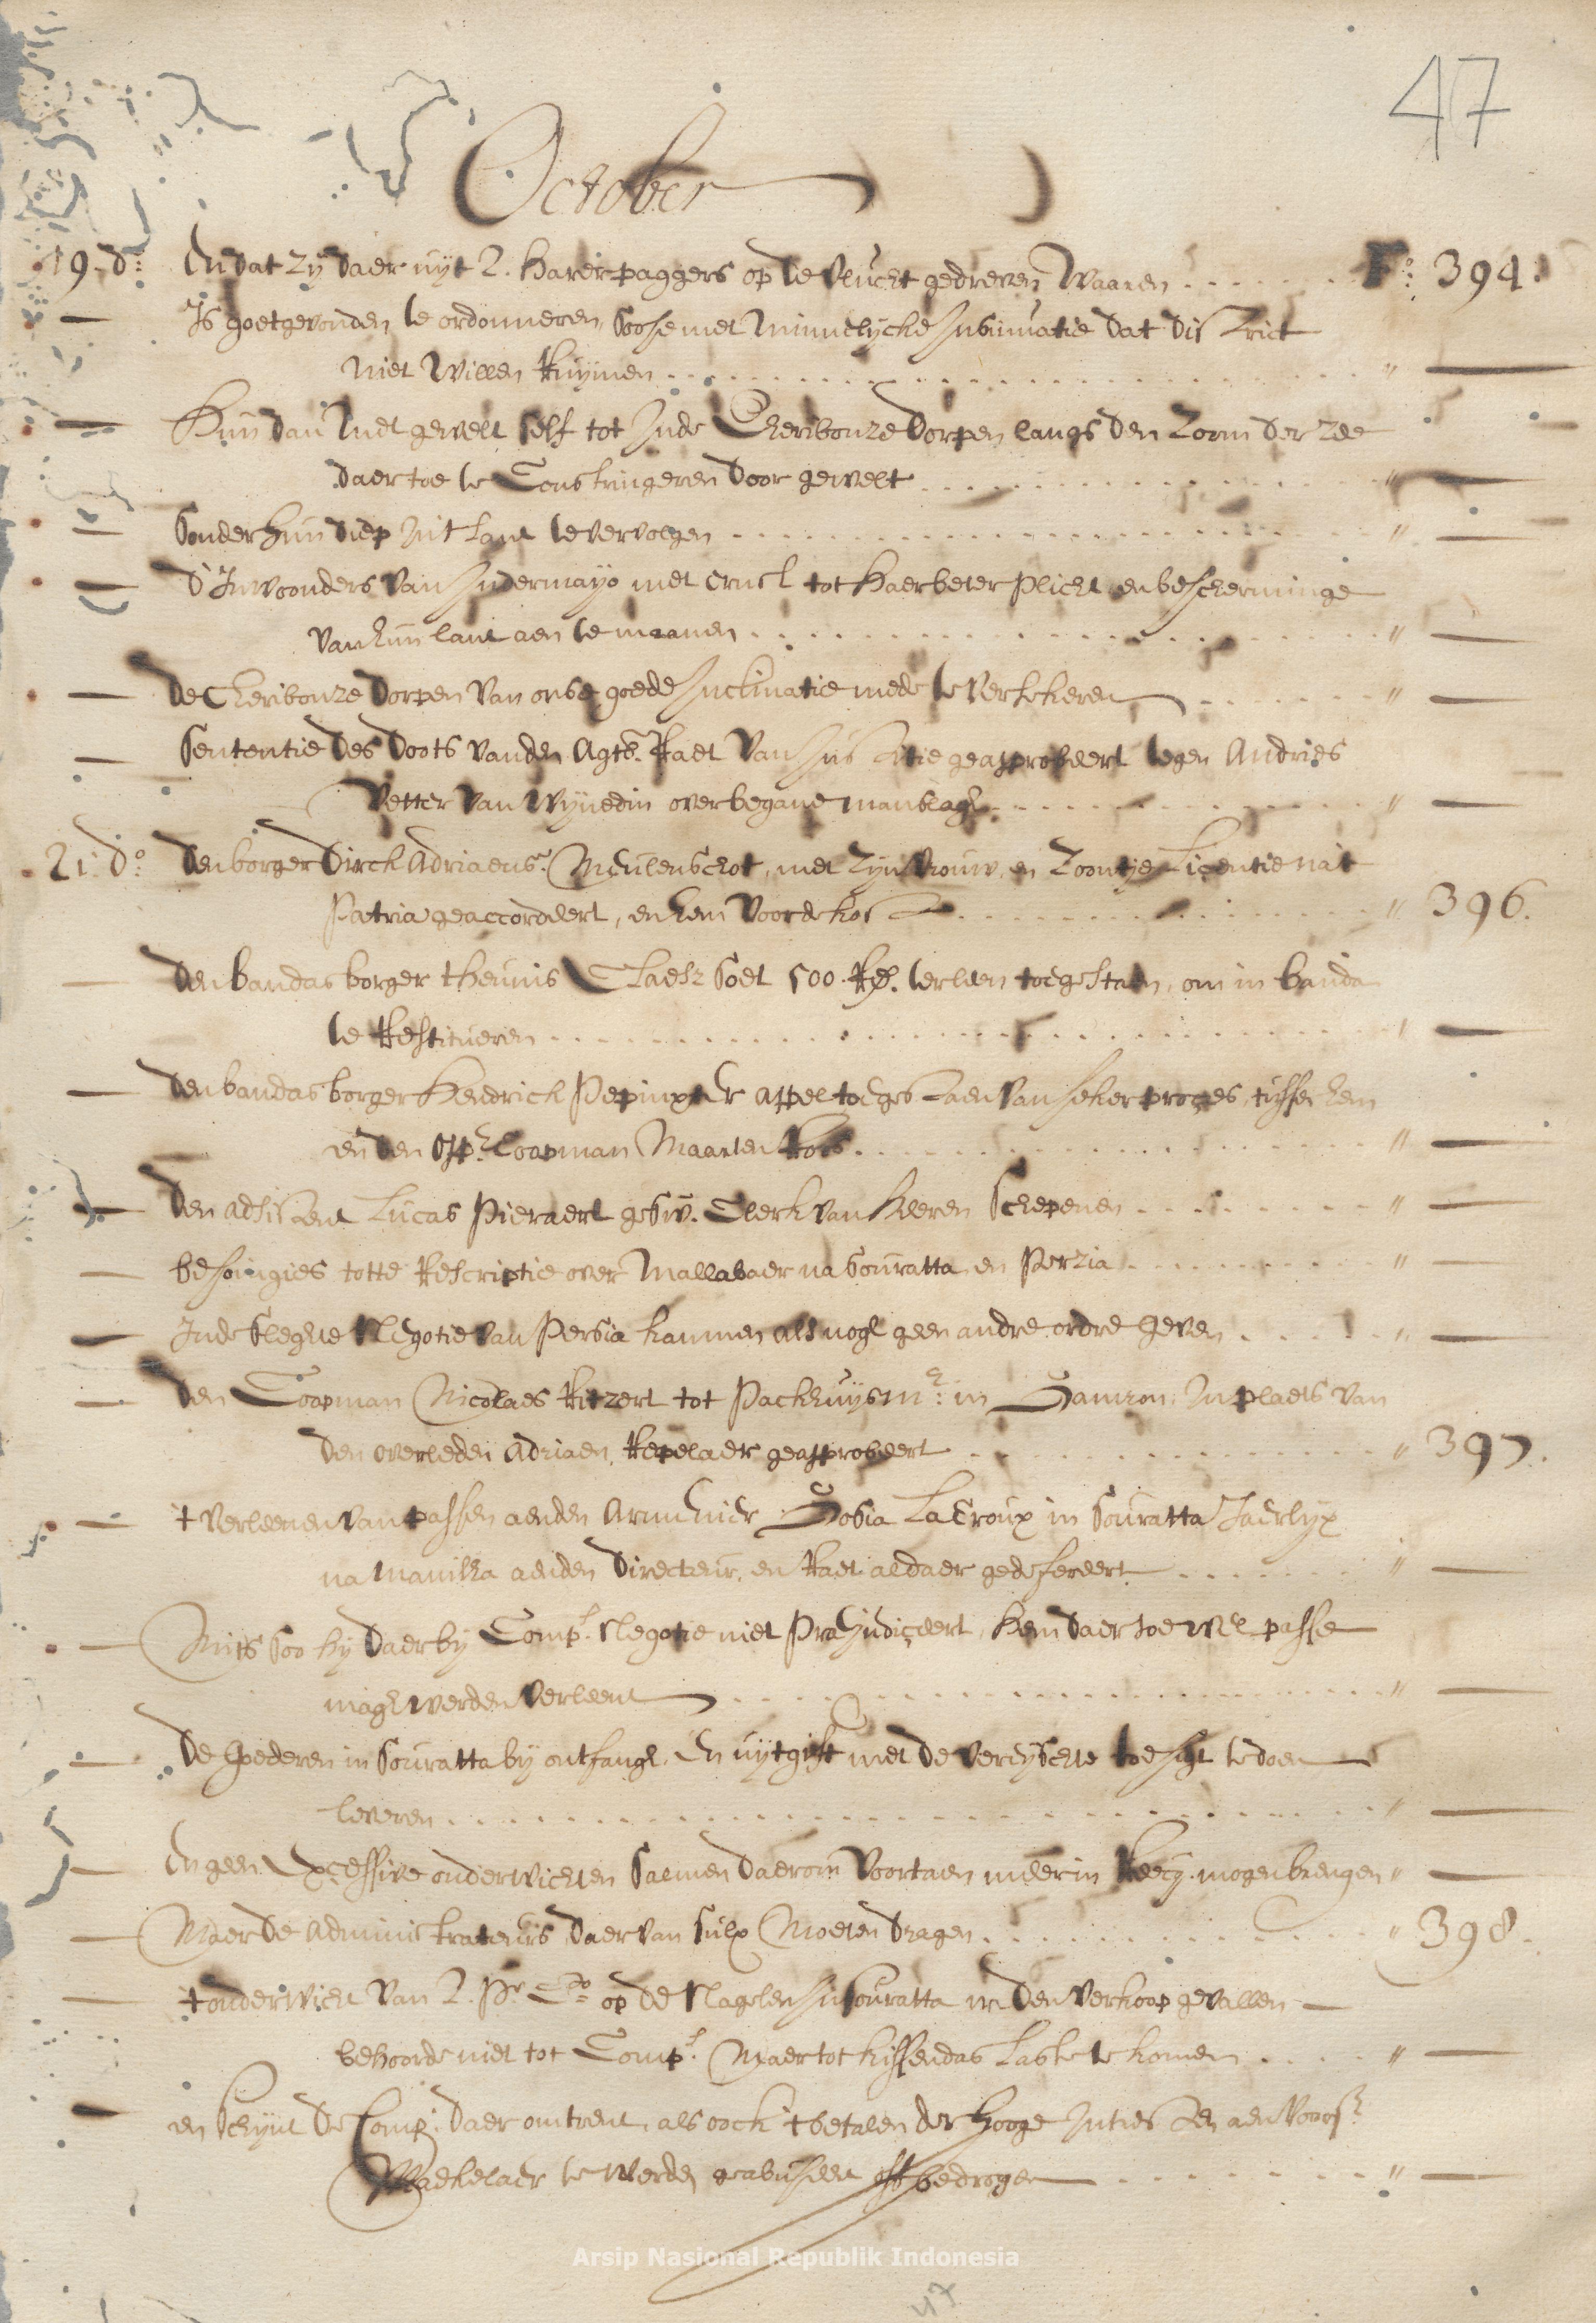 47
October
19. d:o En dat zij daer uijt 2. harer paggers op de vlucht gedreven waaren F:o 394.
Is goetgevonden te ordonneren, soo se met minnelycke insinuatie dat district
niet willen Ruijmen
Hun dan met gewelt self tot in de Cheribonze dorpen langs den Zoom der zee
daertoe te Constringeren door gewelt
Sonder hun diep in't lant te vervolgen
d'Inwoonders van Indermayo met ernst tot haer beter plicht en bescherminge
van hun lant aen te maanen
de Cheribonze dorpen van onse goede Inclinatie mede te versekeren
Sententie des doots van den Agtb. Raet van Justitie geapprobeert tegen Andries
Vetter van over begane manslagh
21. d:o den borger Dirck Adriaensz. Meulenschot, met zijn vrouw, en zoontje Licentie na't
Patria geaccordeert, en hem voor de kost " 396.
den bandas borger theunis Claesz Soet 500. Rx. ter leen toegestaen, om in banda
te Restitueren
den bandas borger Hendrick appel toegestaen van seker proces, tussen hem
en den opp:r Coopman Maarten Roos
den adsistent Lucas Pieraert gesw. Clerk van Heeren Schepenen
besoingies totte Rescriptie over Mallabaer na Souratta en Perzia
In de slechte Negotie van Persia kan men als nogh geen andre ordre geven
den Coopman Nicolaes Ritzert tot Packhuysm:r in Gamron, in plaets van
den overleden Adriaen Repelaer geapprobeert " 397.
't verleenen van passen aen den Armenier in Souratta Jaerlyx
na manilha aen den directeur, en Raet aldaer gedefereert
Mits soo hy daer by Comp:s Negotie niet Præjudiceert, hem daer toe wel passe
magh werden verleent
de Goederen in Souratta by ontfangh, en uytgift met de vereyschte toesigt te doen
leveren
En geen Excessive onderwichten sal men daerom voortaen meer in Reecq. mogen brengen "
Maer de Administrateurs daer van sulx moeten dragen " 398.
't onderwicht van 2. P:r C:to op de Nagelen in Souratta in den verkoop gevallen
behoorde niet tot Comp:s Maer tot kissendas Laste te komen
en schynt de Comp: daer omtrent, als oock 't betalen der hooge aen voorsz
Maekelaer te werden geabuseert oft bedrogen
Arsip Nasional Republik Indonesia
47